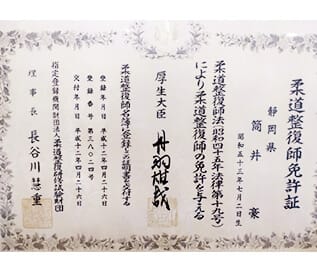 柔道整復師免許証
静岡県
筒井 豪
昭和五十三年七月二日生
柔道整復師法(昭和四十五年法律第十九号)
により柔道整復師の免許を与える
厚生大臣 丹羽雄哉
登録年月日 平成十二年四月二十六日
登録番号 第三八〇二四号
柔道整復師名簿に登録したことを証明する
交付年月日 平成十二年四月二十六日
指定登録機関財団法人柔道整復研修試験財団
理事長 長谷川慧重